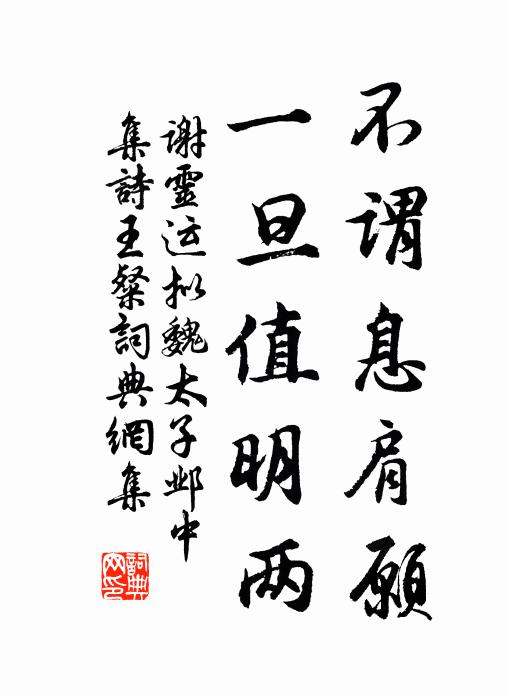 不谓息肩愿
一旦值明两
谢灵运拟魏太子邺中
集詩王粲詞典網集
詞典
网印